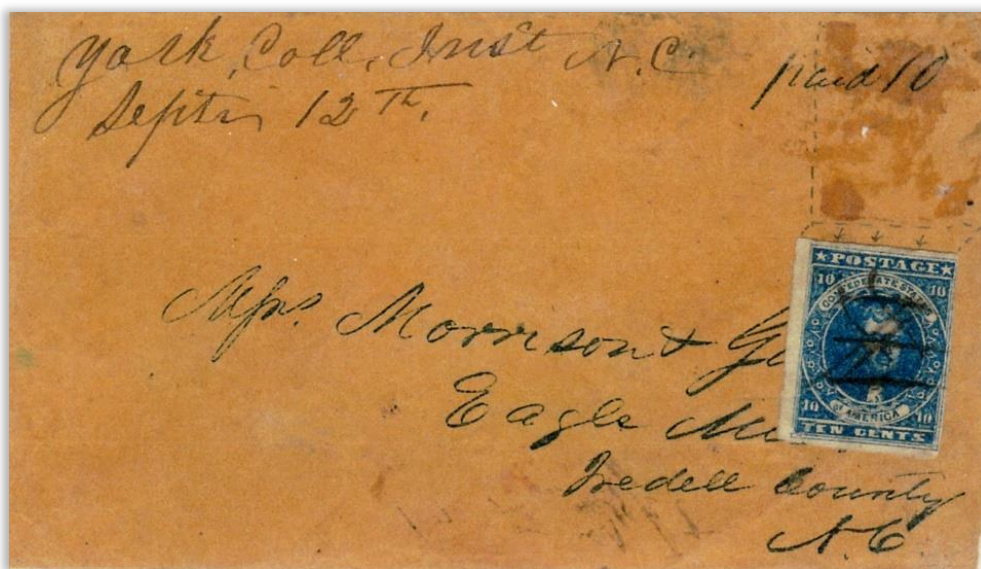 York, Coll, Inst N.C.
Septr 12th.
paid 10
Morrison &
Eagle
Iredell County
N.C
★POSTAGE★
10 10
CONFEDERATE STATES
OF AMERICA
10 10
TEN CENTS